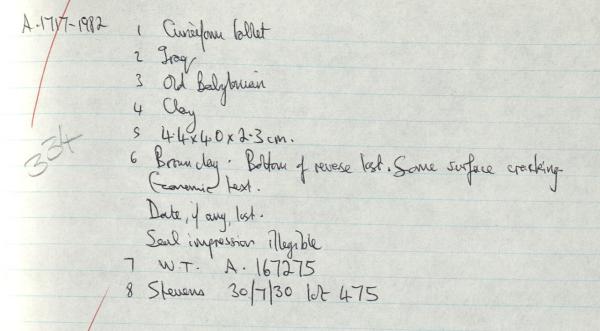 A.1717-1982 1 Cuneiform tablet
2 Iraq
3 Old Babylonian
4 Clay
5 4.4 x 4.0 x 2.3 cm.
6 Brown clay. Bottom of reverse lost. Some surface cracking.
Economic text.
Date, if any, lost.
Seal impression illegible
7 W.T. A. 167275
8 Stevens 30/7/30 lot 475
334